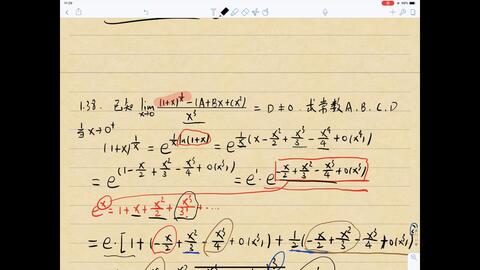 11:29
1.38. 已知 lim x→0 ((1+x)^{1/x} - (A+Bx+Cx²))/x³ = D ≠ 0. 求常数 A.B.C.D
当 x→0⁺
(1+x)^{1/x} = e^{1/x ln(1+x)} = e^{1/x (x - x²/2 + x³/3 - x⁴/4 + o(x⁴))}
= e^{(1 - x/2 + x²/3 - x³/4 + o(x³))} = e¹ · e^{-x/2 + x²/3 - x³/4 + o(x³)}
e^x = 1 + x + x²/2 + x³/3! + ····
= e·[1 + (-x/2 + x²/3 - x³/4 + o(x³)) + 1/2(-x/2 + x²/3 - x³/4 + o(x³))²